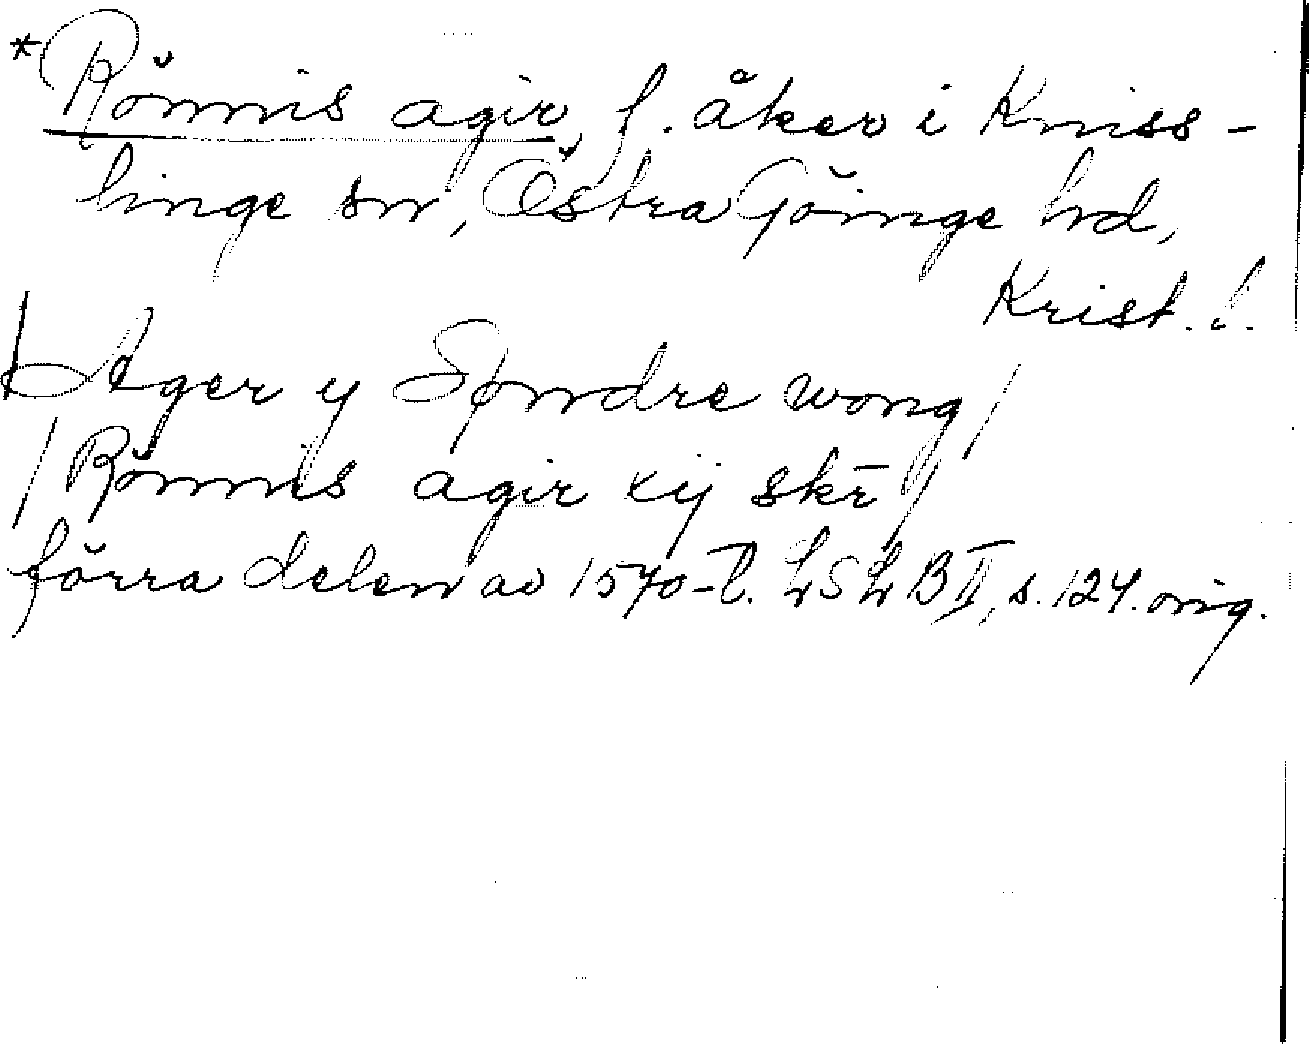 *Rönnis agir, f. åker i Kniss-
linge sn, Östra Göinge hd,
Krist. l.
Ager y Søndre wong/
/Rönnis agir xij skr̄/
förra delen av 1570-t. LSLB II, s. 124. orig.